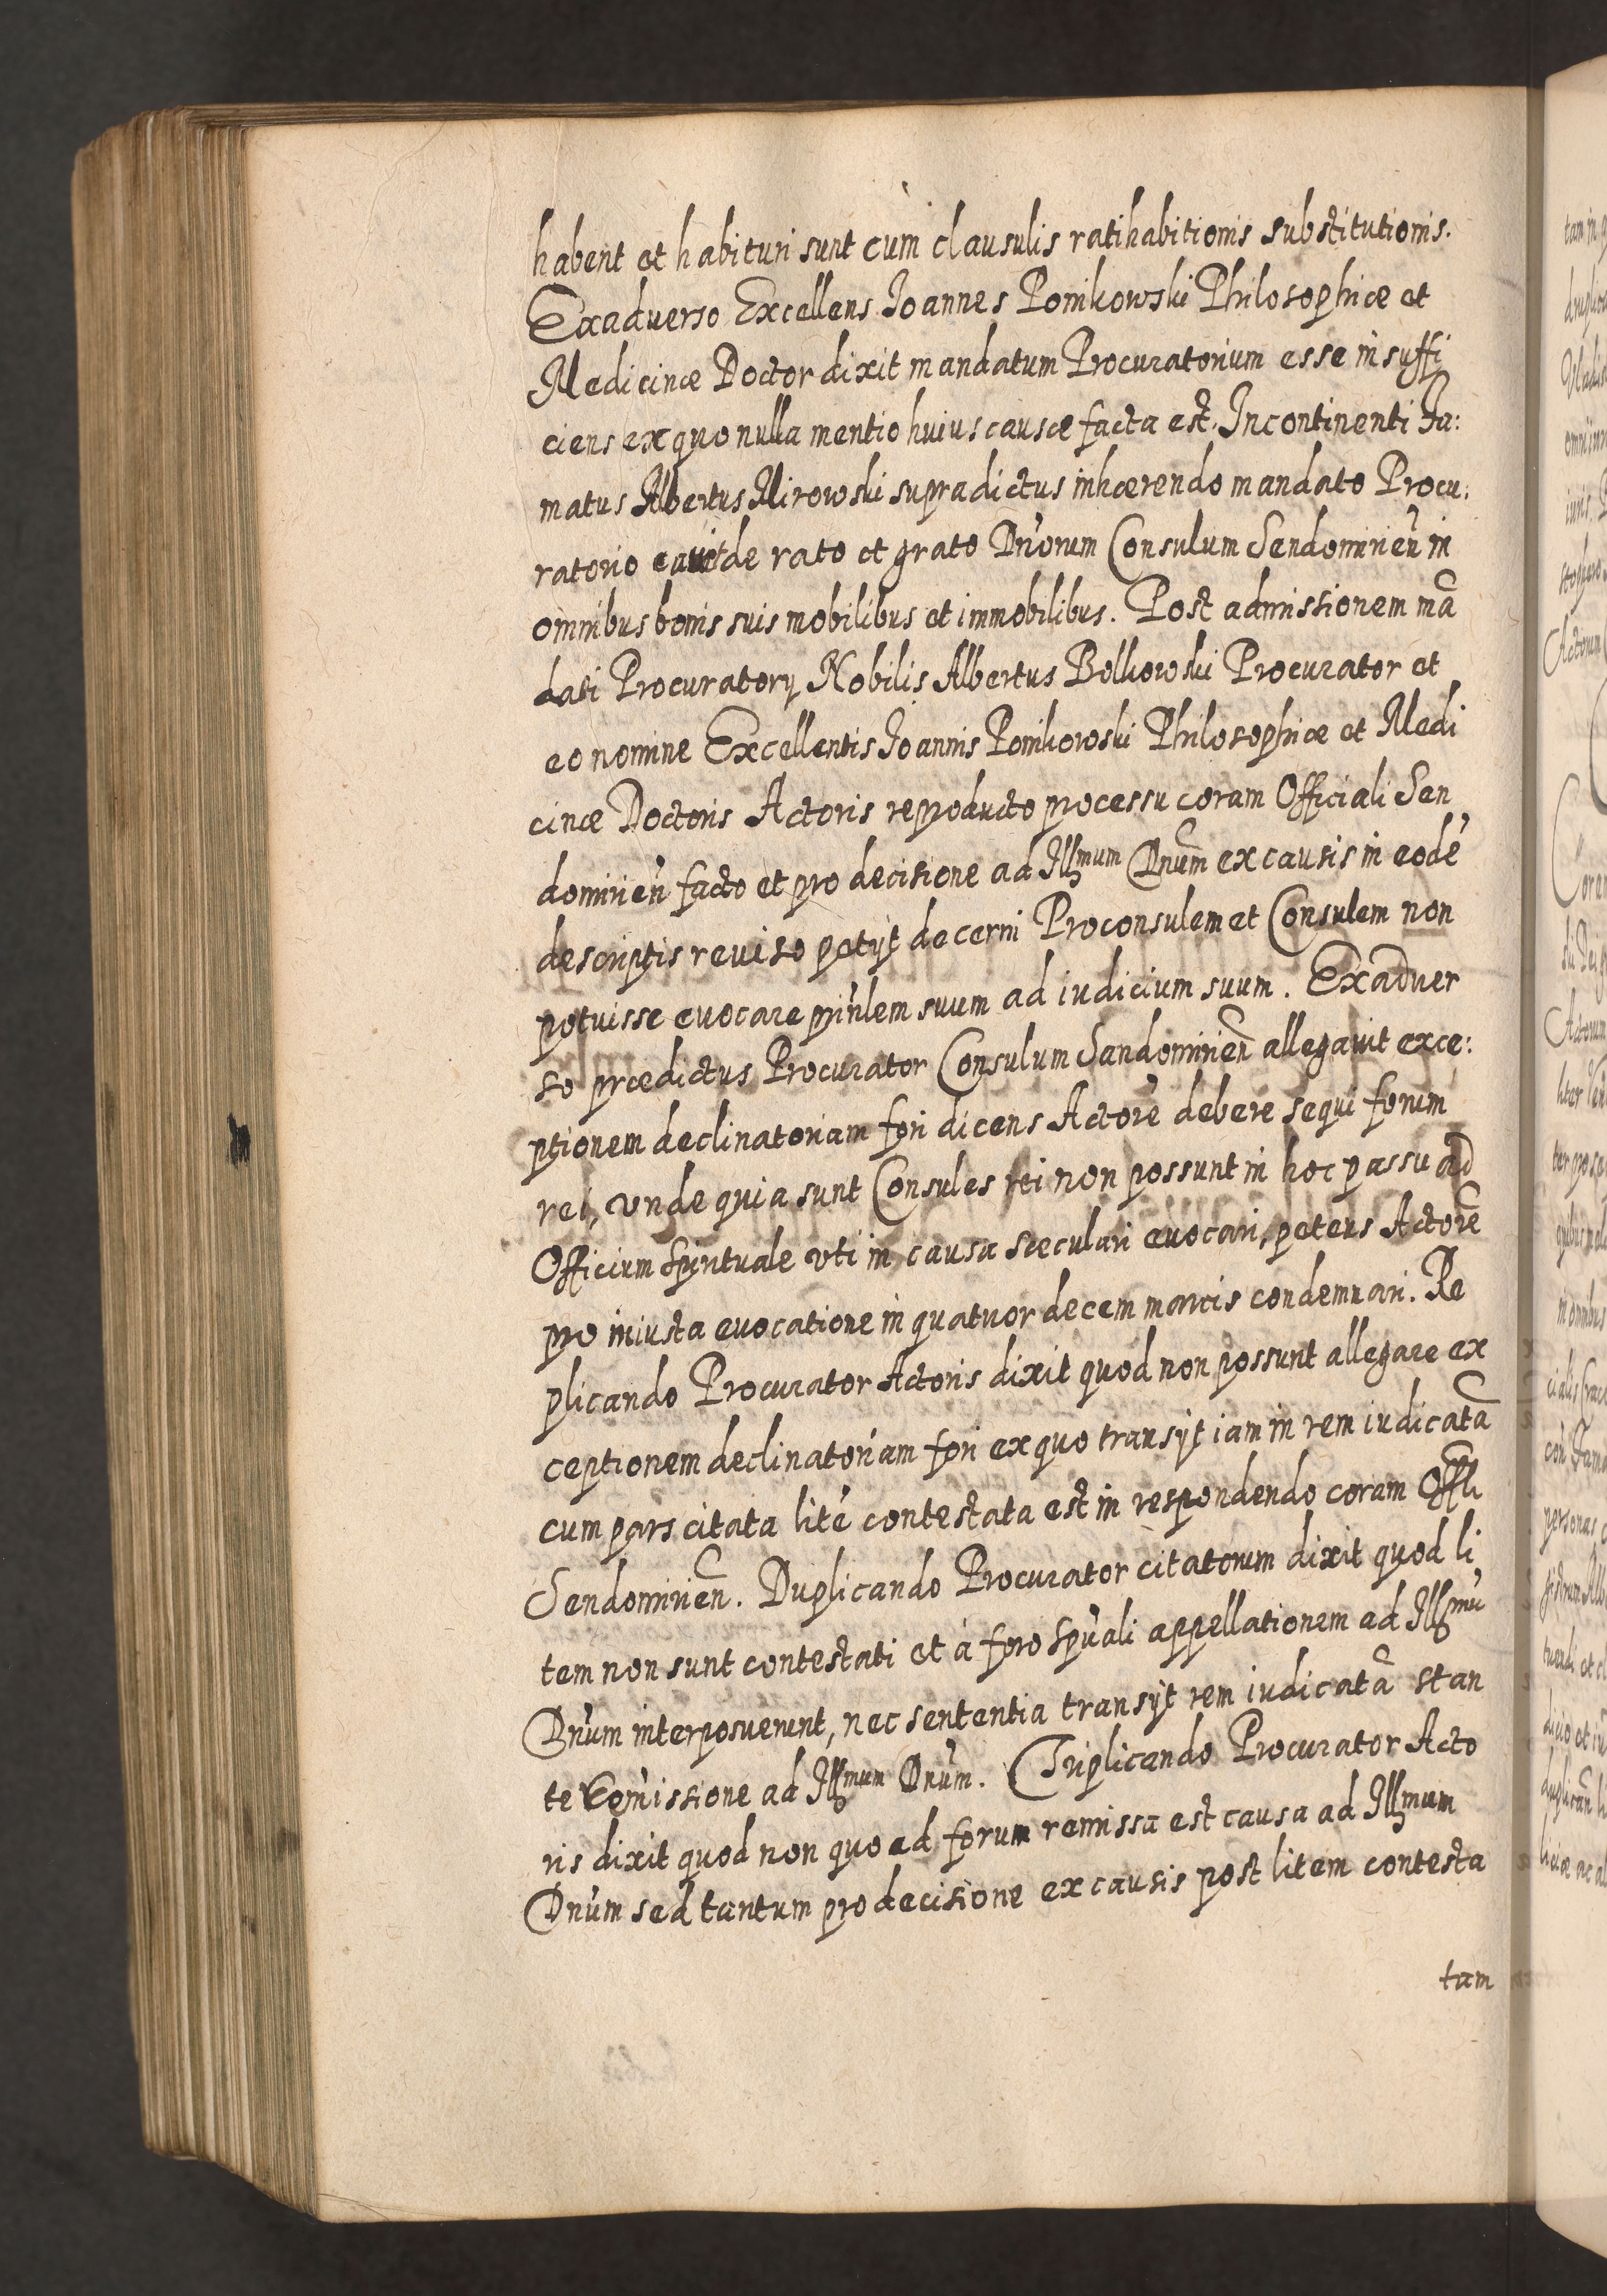 habent et habituri sunt cum clausulis ratihabitionis substitutionis.
Exaduerso Excellens Joannes Ponikowski Philosophiæ et
Medicinæ Doctor dixit mandatum Procuratorium esse insuffi
ciens ex quo nulla mentio huius causæ facta est. Incontinenti Fa:
matus Albertus Mirowski supradictus inhærendo mandato Procu:
ratorio cauit de rato et grato Dn̄orum Consulum Sendomirien̄ in
omnibus bonis suis mobilibus et immobilibus. Post admissionem mā
dati Procuratorÿ Nobilis Albertus Bolkowski Procurator et
eo nomine Excellentis Joannis Ponikowski Philosophiæ et Medi
cinæ Doctoris Actoris reproducto processu coram Officiali San
domirien̄ facto et pro decisione ad Illmum Dnūm ex causis in eodē
descriptis reuiso petÿt decerni Proconsulem et Consulem non
potuisse euocare prin̄lem suum ad iudicium suum. Exaduer
so prædictus Procurator Consulum Sandomirien̄ allegauit exce:
ptionem declinatoriam fori dicens Actorē debere sequi forum
rei, vnde quia sunt Consules rei non possunt in hoc passu ad
Officium Spirituale vti in causa sæculari euocari, petens Actorē
pro iniusta euocatione in quatuordecem marcis condemnari. Re
plicando Procurator Actoris dixit quod non possunt allegare ex
ceptionem declinatoriam fori ex quo transÿt iam in rem iudicatā
cum pars citata litē contestata est in respondendo coram Offli
Sendomirien̄. Duplicando Procurator citatorum dixit quod li
tem non sunt contestati et à foro Spūali appellationem ad Illmū
Dnūm interposuerunt, nec sententia transÿt rem iudicatā stan
te Remissione ad Illmum Dnūm. Triplicando Procurator Acto
ris dixit quod non quo ad forum remissa est causa ad Illmum
Dnūm sed tantum pro decisione ex causis post litem contesta
tam